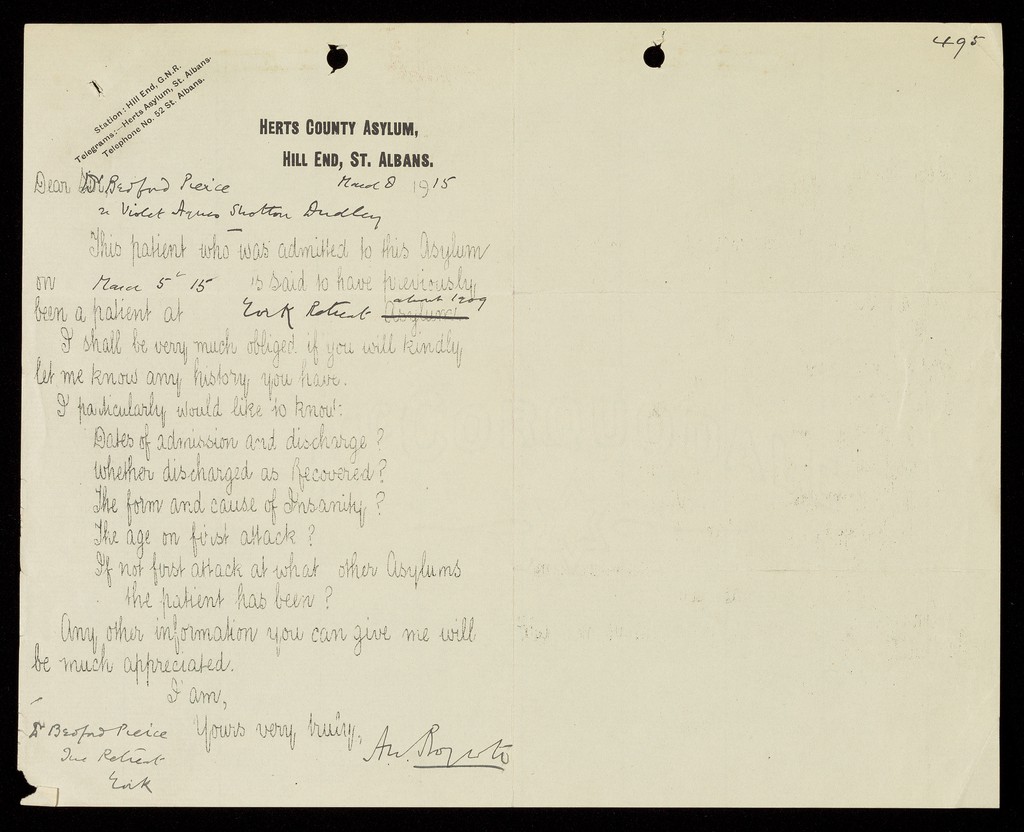 495
Station: Hill End, G.N.R.
Telegrams:—Herts Asylum, St. Albans.
Telephone No. 52 St. Albans.
HERTS COUNTY ASYLUM,
HILL END, ST. ALBANS.
March 8 1915
Dear Dr Bedford Pierce
re Violet Agnes Shotton Dudley
This patient who was admitted to this Asylum
on March 5th 15 is said to have previously
been a patient at York Retreat Asylum about 1909
I shall be very much obliged if you will kindly
let me know any history you have.
I particularly would like to know:
Dates of admission and discharge?
Whether discharged as Recovered?
The form and cause of Insanity?
The age on first attack?
If not first attack at what other Asylums
the patient has been?
Any other information you can give me will
be much appreciated.
I am,
Yours very truly,
Dr Bedford Pierce
The Retreat
York